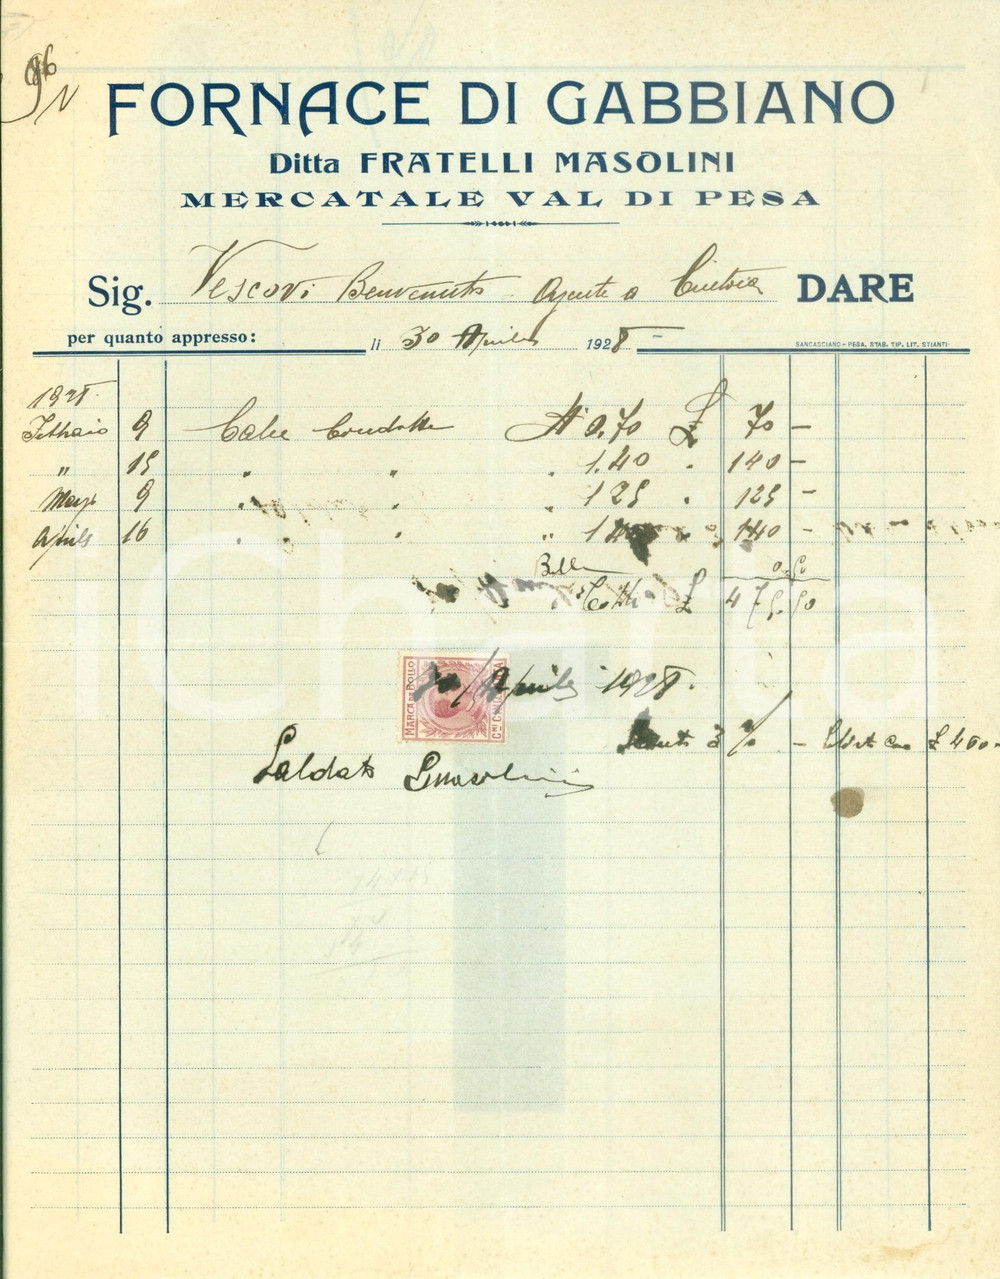 FORNACE DI GABBIANO
Ditta FRATELLI MASOLINI
MERCATALE VAL DI PESA
Sig. Vescovi Benvenuto - Agente a DARE
per quanto appresso: li 30 Aprile 1928 -
SANCASCIANO - PESA. STAB. TIP. LIT. STIANTI
1928.
Febbraio 9 Calce Condotta 0.70 £ 70 -
" 15 " " " 1.40 " 140 -
Marzo 9 " " 125 " 125 -
Aprile 16 " " " 140 -
Bollo 0.50
£ 475.50
MARCA DA BOLLO
30/Aprile 1928.
Sconto 3 % - £ 460 -
Saldato Masolini
iCharta